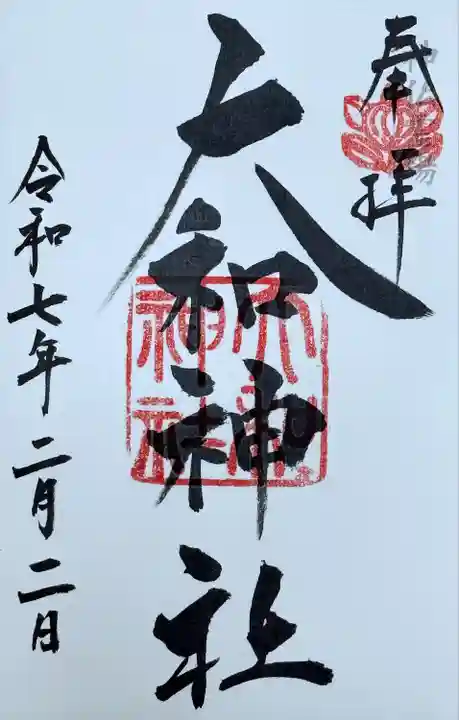 奉拝
大和神社
令和七年二月二日